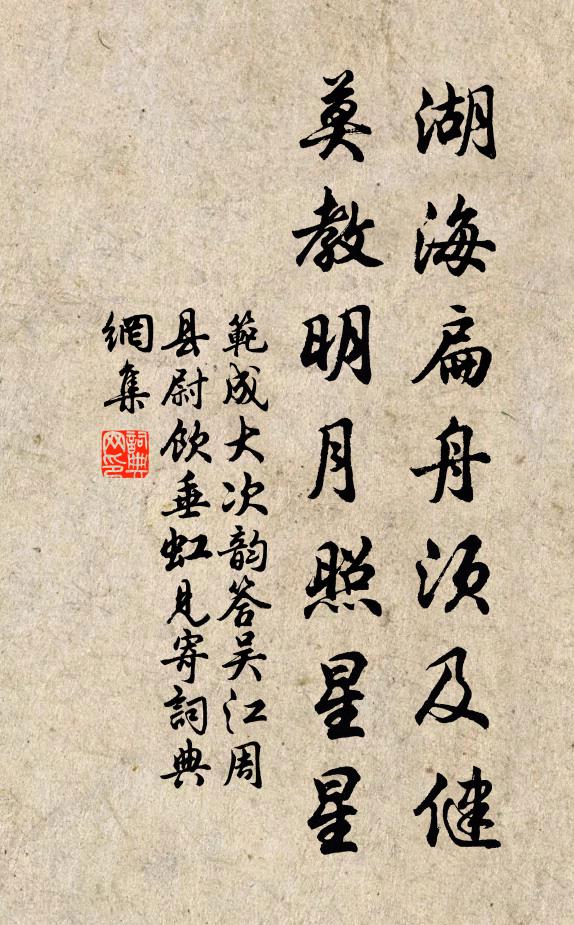 湖海扁舟须及健
莫教明月照星星
範成大次韵答吴江周
县尉饮垂虹见寄詞典
網集
詞典网印